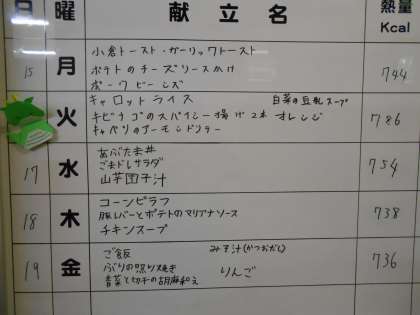 日 曜 献立名 熱量 Kcal
15 月 小倉トースト・ガーリックトースト 744
ポテトのチーズソースかけ
ポークビーンズ
火 キャロットライス 白菜の豆乳スープ 786
キビナゴのスパイシー揚げ2本 オレンジ
キャベツのアーモンドソテー
17 水 あぶたま丼 754
ごまドレサラダ
山芋団子汁
18 木 コーンピラフ 738
豚レバーとポテトのマリアナソース
チキンスープ
19 金 ご飯 みそ汁(かつおだし) 736
ぶりの照り焼き りんご
青菜と切干の胡麻和え